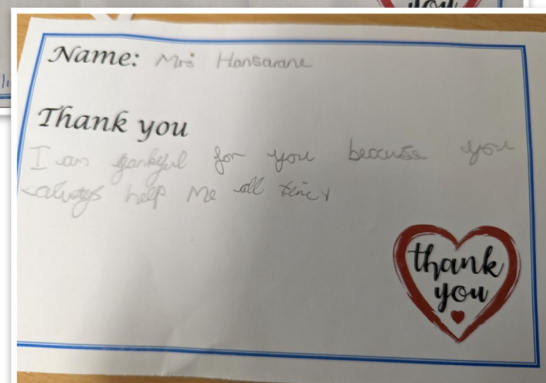 you
Name: Mrs Hansarane
Thank you
I am gankful for you because you
always help me all time
thank
you